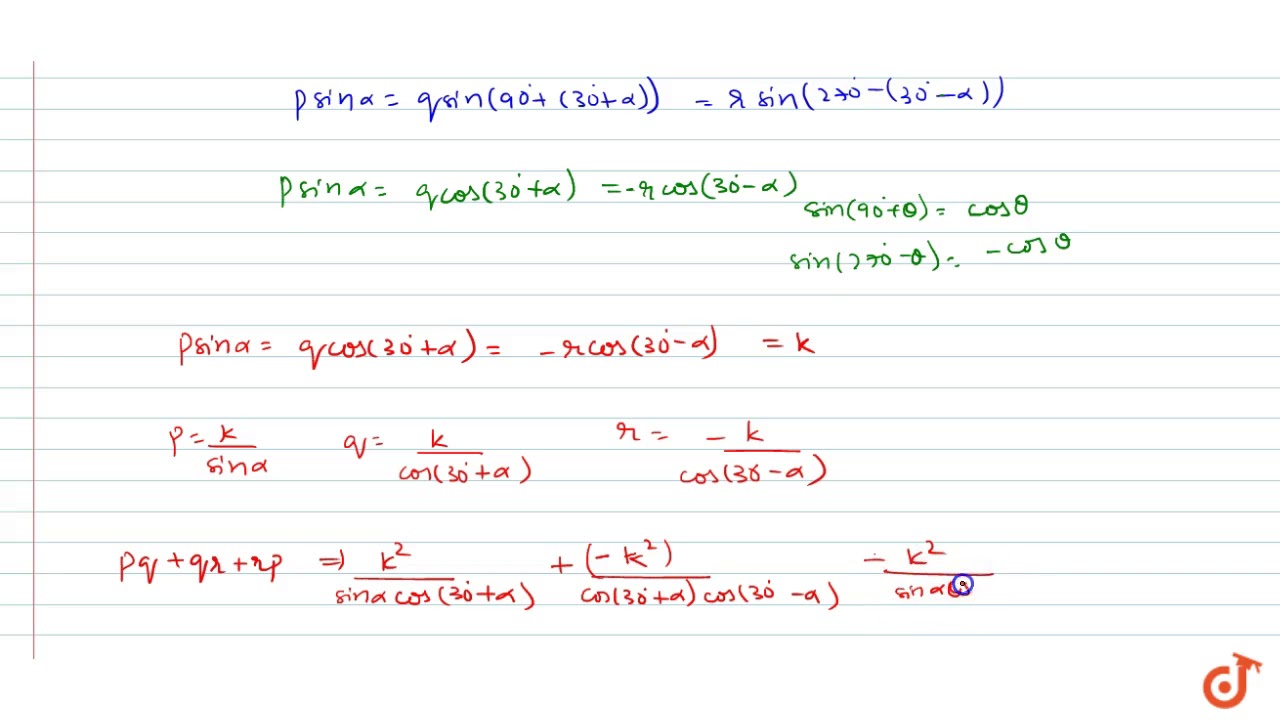 p sinα = q sin(90°+ (30°+α)) = r sin(270° - (30° - α))
p sinα = q cos(30°+α) = -r cos(30° - α)
sin(90°+θ) = cosθ
sin(270° - θ) = - cosθ
p sinα = q cos(30°+α) = - r cos(30° - α) = k
p = k/sinα q = k/cos(30°+α) r = - k/cos(30° - α)
pq + qr + rp ⇒ k²/sinα cos(30°+α) + (-k²)/cos(30°+α) cos(30° - α) - k²/sinα